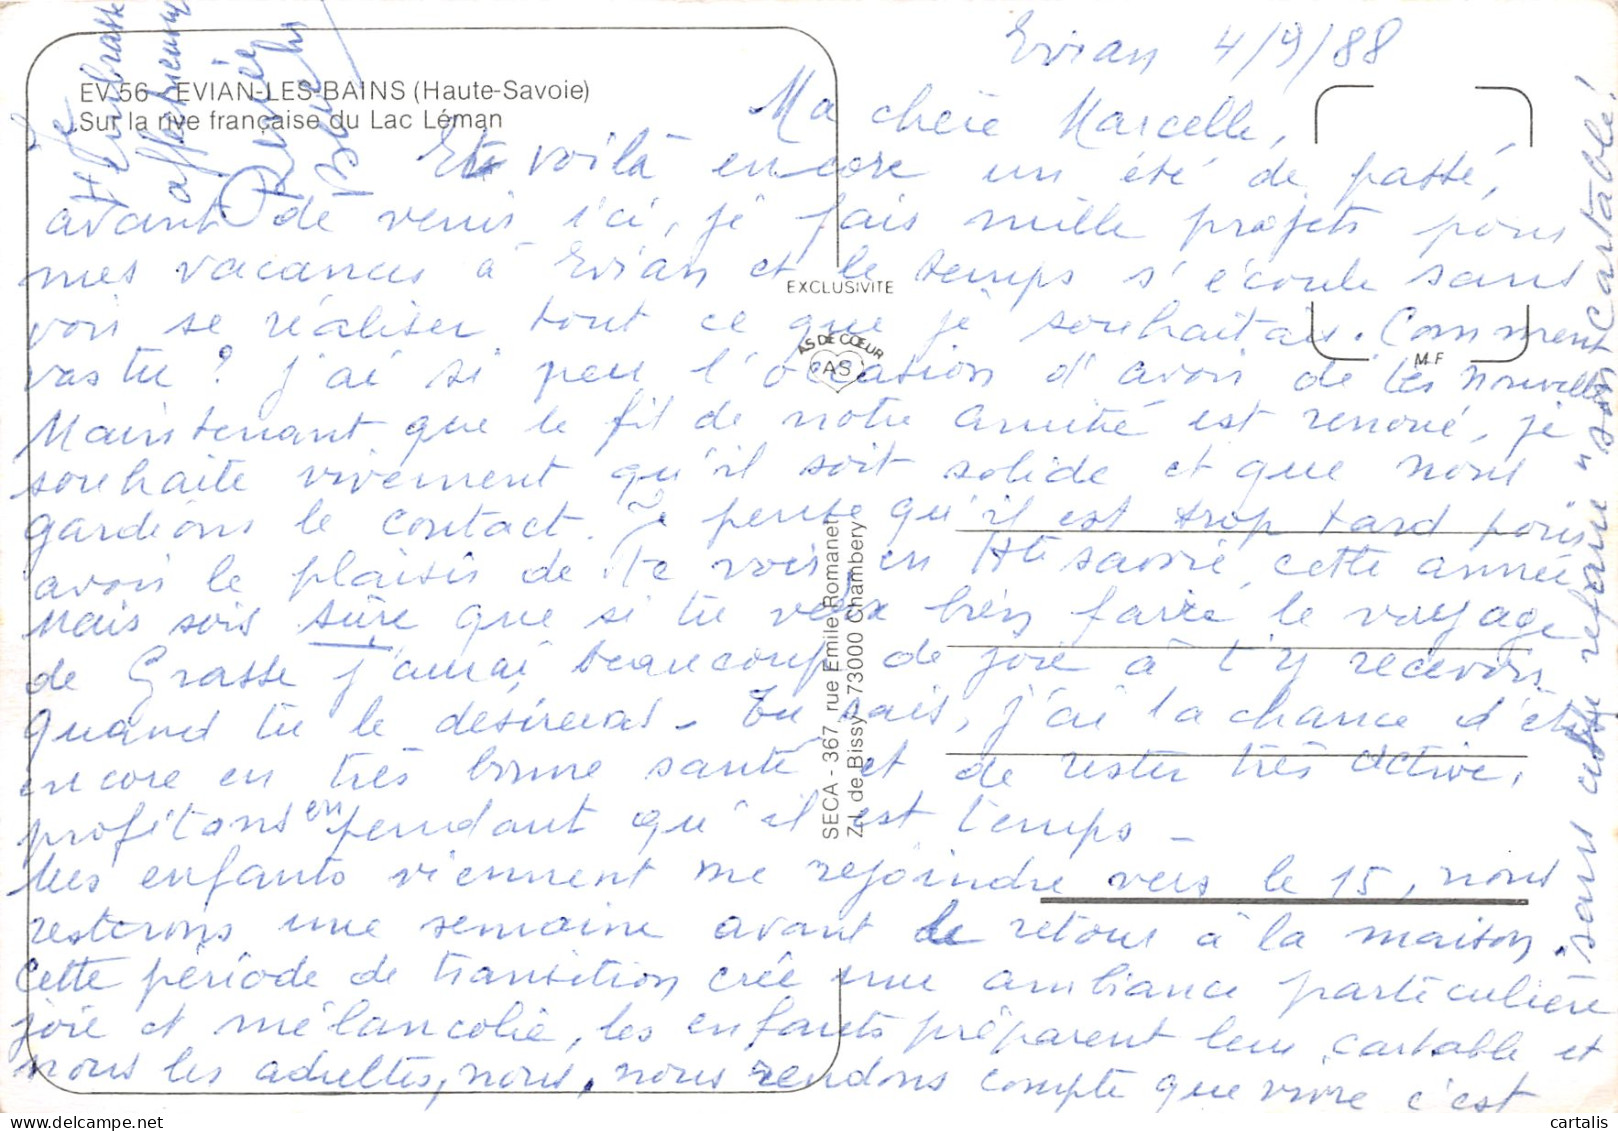 Evian 4/9/88
EV 56 - EVIAN-LES-BAINS (Haute-Savoie)
Sur la rive française du Lac Léman
Ma chère Marcelle,
Et voilà encore un été de passé,
avant de venir ici, je fais mille projets pour
mes vacances à Evian et le temps s'écoule sans
voir se réaliser tout ce que je souhaitais. Comment
vas tu ? J'ai si peu l'occasion d'avoir de tes nouvelles
Maintenant que le fil de notre amitié est renoué, je
souhaite vivement qu'il soit solide et que nous
gardions le contact. Je pense qu'il est trop tard pour
avoir le plaisir de te voir en Hte savoie, cette année
Mais sois sûre que si tu veux bien faire le voyage
de Grasse j'aurai beaucoup de joie à t'y recevoir
quand tu le désireras - Tu sais, j'ai la chance d'être
encore en très bonne santé et de rester très active,
profitons en pendant qu'il est temps -
Les enfants viennent me rejoindre vers le 15, nous
resterons une semaine avant le retour à la maison.
Cette période de transition crée une ambiance particulière
joie et mélancolie, les enfants préparent leur cartable et
nous les adultes, nous, nous rendons compte que vivre c'est
sans cesse refaire "son cartable!
Je t'embrasse
affectueusement
Renée
EXCLUSIVITE
AS DE COEUR
AS
M.F
SECA - 367, rue Emile Romanet
Z.I. de Bissy 73000 Chambery
cartalis
delcampe.net